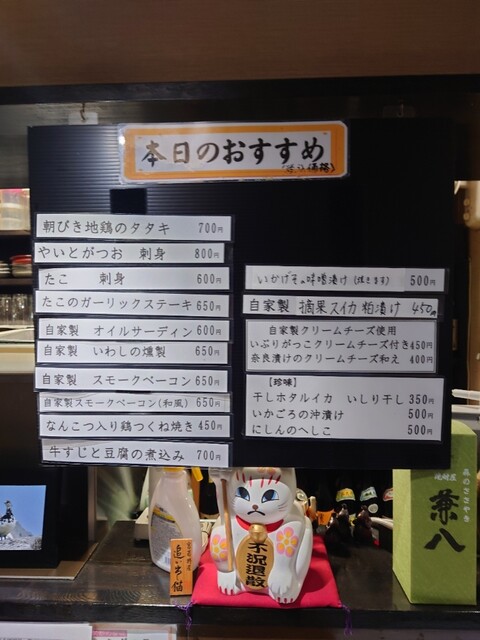 本日のおすすめ
朝びき地鶏のタタキ 700円
やいとがつお 刺身 800円
たこ 刺身 600円
たこのガーリックステーキ 650円
自家製 オイルサーディン 600円
自家製 いわしの燻製 650円
自家製 スモークベーコン 650円
自家製スモークベーコン(和風) 650円
なんこつ入り鶏つくね焼き 450円
牛すじと豆腐の煮込み 700円
いかげその味噌漬け (焼きます) 500円
自家製 摘果スイカ粕漬け 450円
自家製クリームチーズ使用
いぶりがっこクリームチーズ付き 350円
奈良漬けのクリームチーズ和え 400円
【珍味】
干しホタルイカ いしり干し 350円
いかごろの沖漬け 500円
にしんのへしこ 500円
不況退散
追い猫
兼八